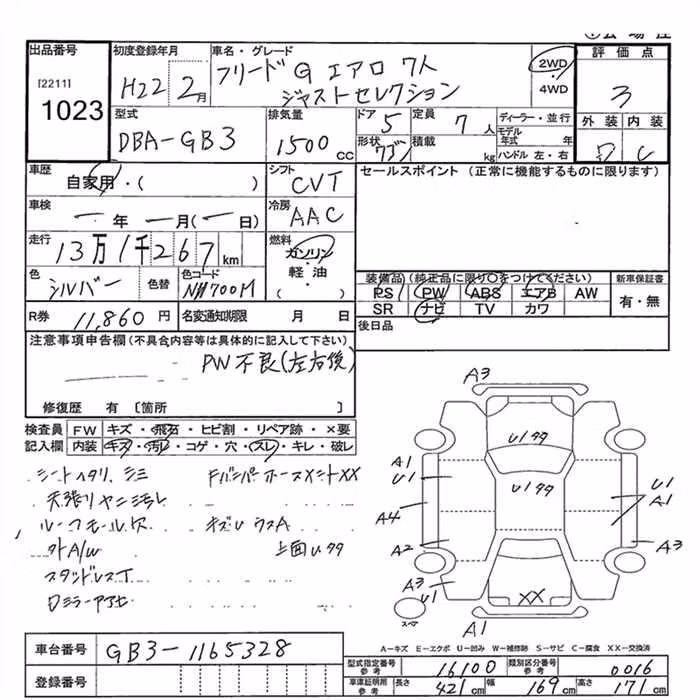 出品番号
[2211]
1023
初度登録年月
H22 2月
車名・グレード
フリード G エアロ 7人
ジャストセレクション
2WD
4WD
評価点
3
外装 内装
D C
型式
DBA-GB3
排気量
1500 cc
ドア 5
定員 7人
形状 ワゴン
積載 kg
ディーラー・並行
モデル年式 年
ハンドル 左・右
車歴
自家用・( )
シフト
CVT
セールスポイント (正常に機能するものに限ります)
車検
年 月( 日)
冷房
AAC
走行
13万1千267km
燃料
ガソリン
軽油
( )
色
シルバー
色替
色コード
NH700M
装備品 (純正品に限り○をつけてください)
PS PW ABS エアB AW
SR ナビ TV カワ
新車保証書
有・無
R券 11,860円
名変通知期限 月 日
後日品
注意事項申告欄(不具合内容等は具体的に記入して下さい)
PW不良(左右後)
修復歴 有 [箇所 ]
検査員 FW キズ・飛石・ヒビ割・リペア跡・×要
記入欄 内装 キズ・汚れ・コゲ・穴・スレ・キレ・破レ
シートヘタリ、シミ
FバンパーホースメントXX
天張りヤニ汚レ
ルーフモール欠
キズU ウスA
外A/W
上面Uタタ
スタッドレスT
A3
Uタタ
A1
U1
Uタタ
U1
A1
A4
A2
A3
A3
U1
XX
スペア
A1
A-キズ E-エクボ U-凹み W-補修跡 S-サビ C-腐食 XX-交換済
車台番号
GB3-1165328
登録番号
型式指定番号 参考 16100
類別区分番号 参考 0016
車庫証明用 参考 長さ 421cm 幅 169cm 高さ 171cm